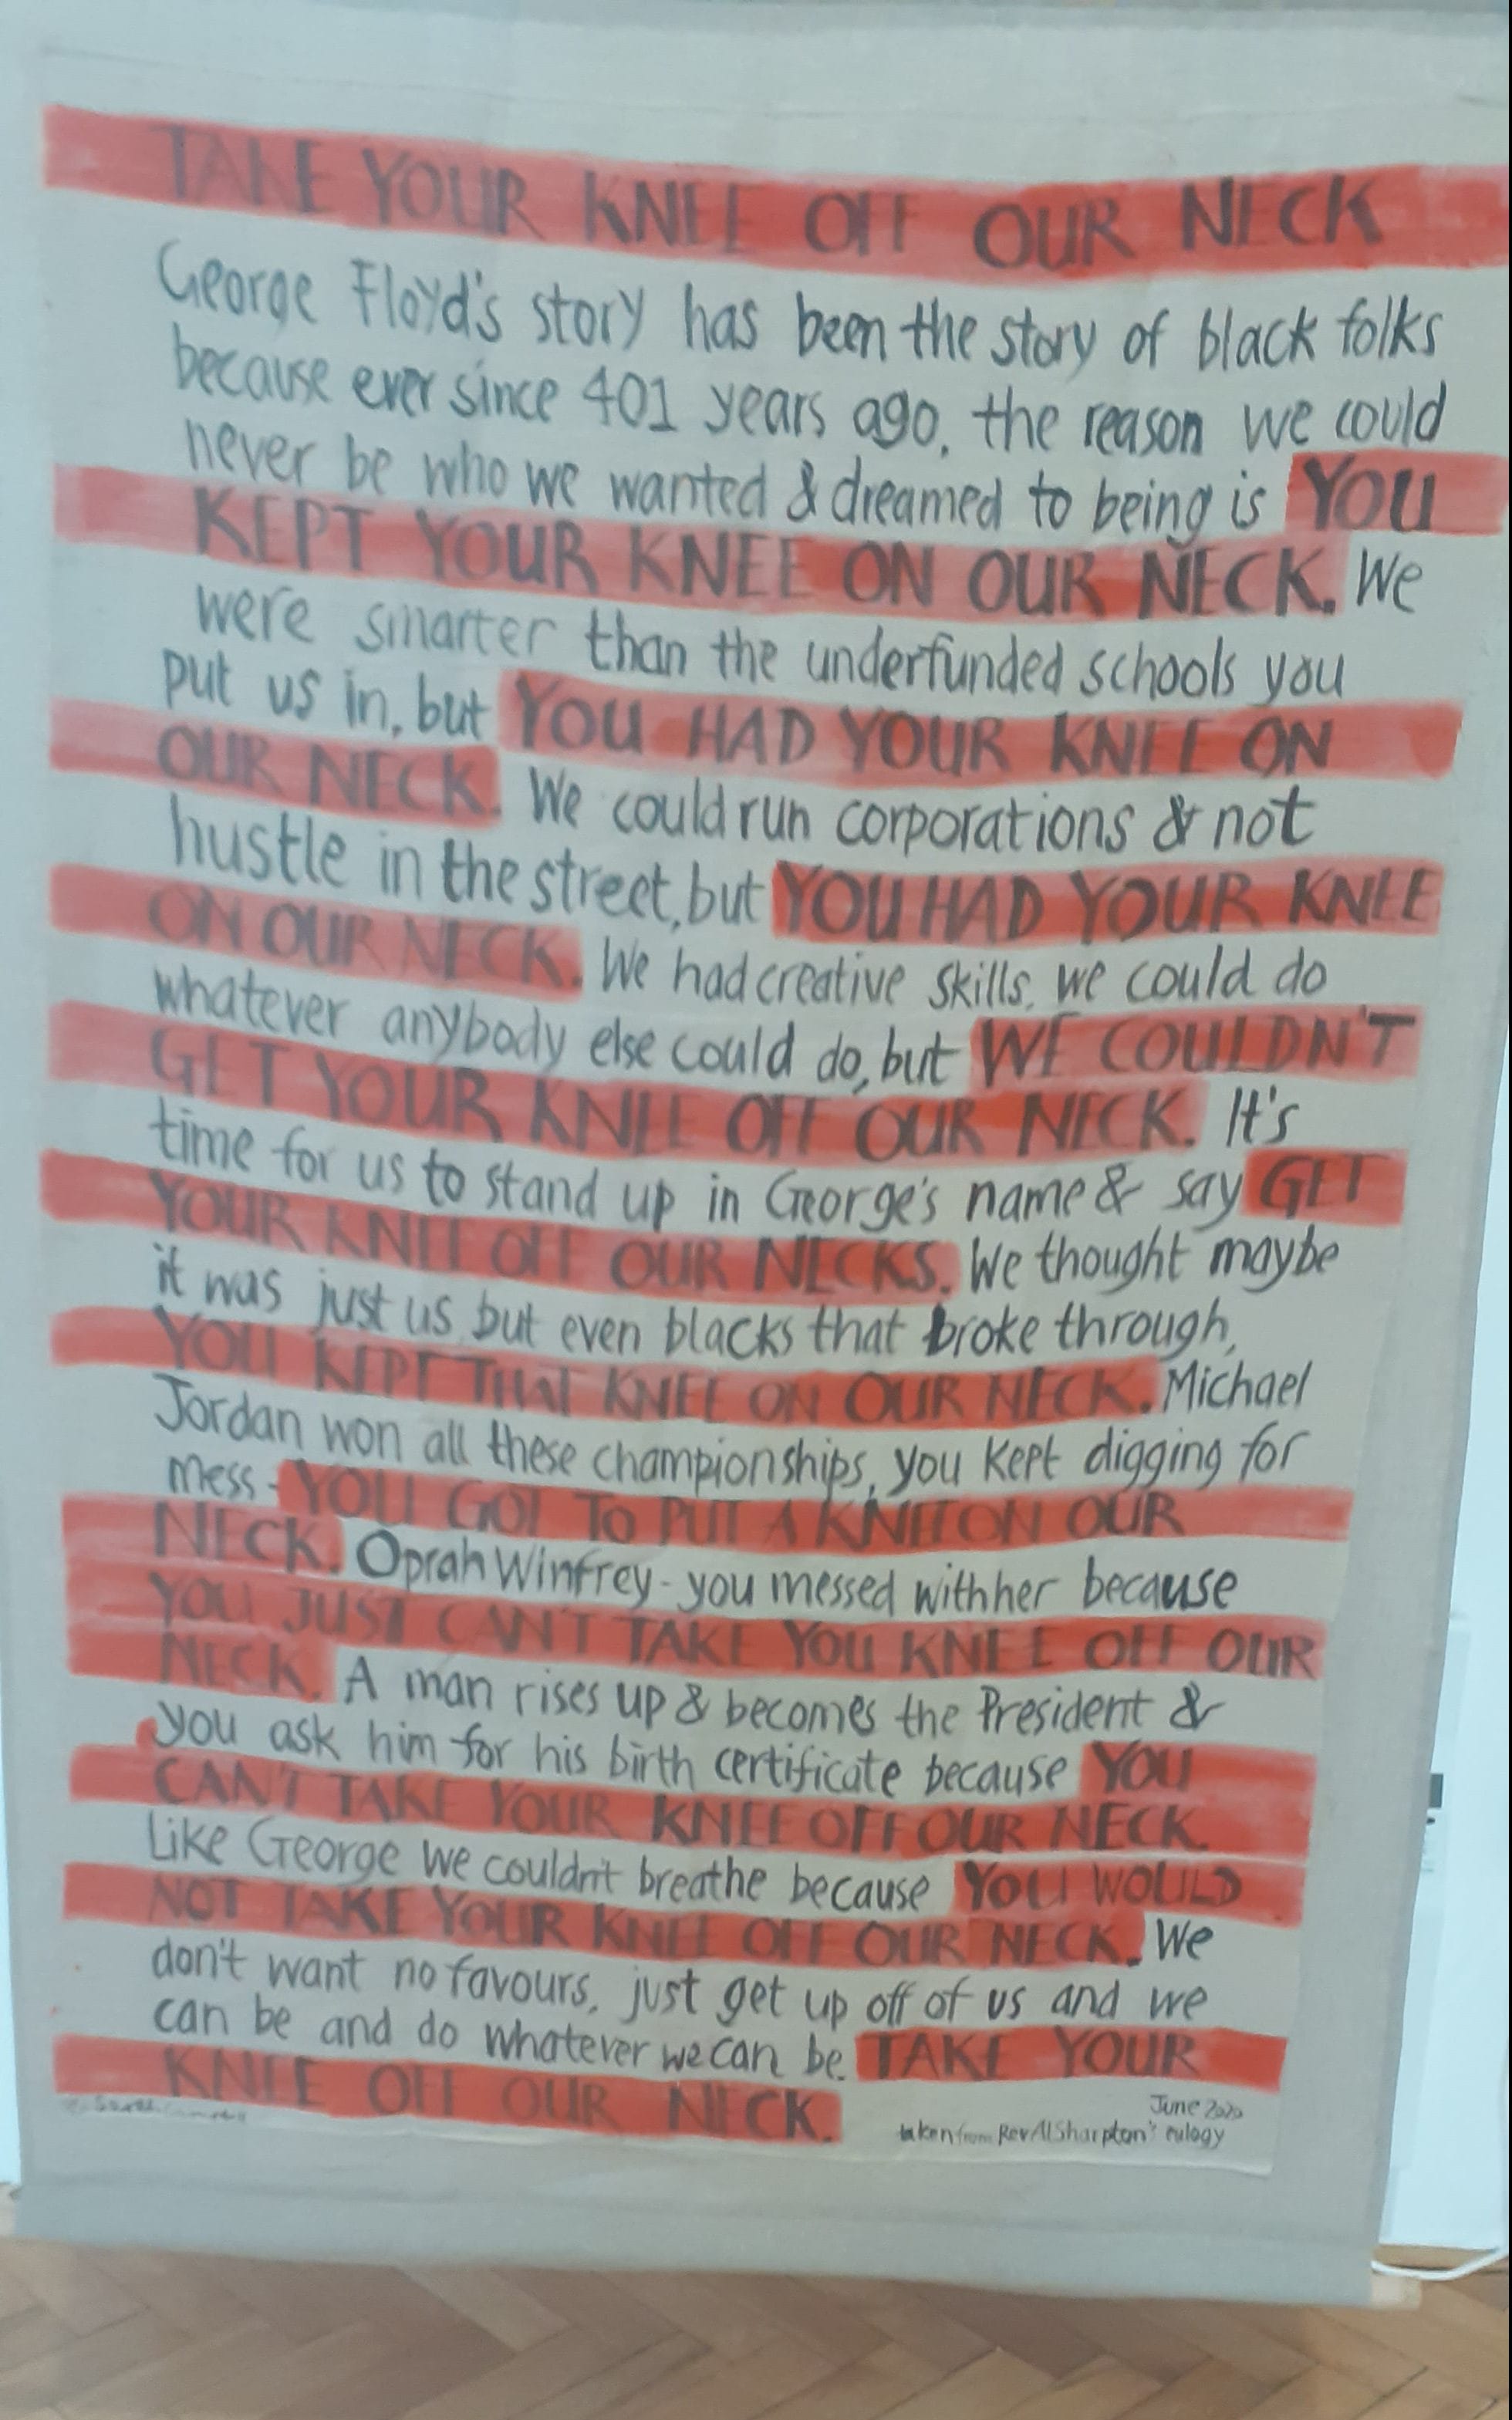 TAKE YOUR KNEE OFF OUR NECK
George Floyd's story has been the story of black folks
because ever since 401 years ago, the reason we could
never be who we wanted & dreamed to being is YOU
KEPT YOUR KNEE ON OUR NECK. We
were smarter than the underfunded schools you
put us in, but YOU HAD YOUR KNEE ON
OUR NECK. We could run corporations & not
hustle in the street, but YOU HAD YOUR KNEE
ON OUR NECK. We had creative skills, we could do
whatever anybody else could do, but WE COULDN'T
GET YOUR KNEE OFF OUR NECK. It's
time for us to stand up in George's name & say GET
YOUR KNEE OFF OUR NECKS. We thought maybe
it was just us, but even blacks that broke through,
YOU KEPT THAT KNEE ON OUR NECK. Michael
Jordan won all these championships, you kept digging for
mess - YOU GOT TO PUT A KNEE ON OUR
NECK. Oprah Winfrey - you messed with her because
YOU JUST CAN'T TAKE YOU KNEE OFF OUR
NECK. A man rises up & becomes the President &
you ask him for his birth certificate because YOU
CAN'T TAKE YOUR KNEE OFF OUR NECK.
Like George we couldn't breathe because YOU WOULD
NOT TAKE YOUR KNEE OFF OUR NECK. We
don't want no favours, just get up off of us and we
can be and do whatever we can be. TAKE YOUR
KNEE OFF OUR NECK.
June 2020
taken from Rev Al Sharpton's eulogy